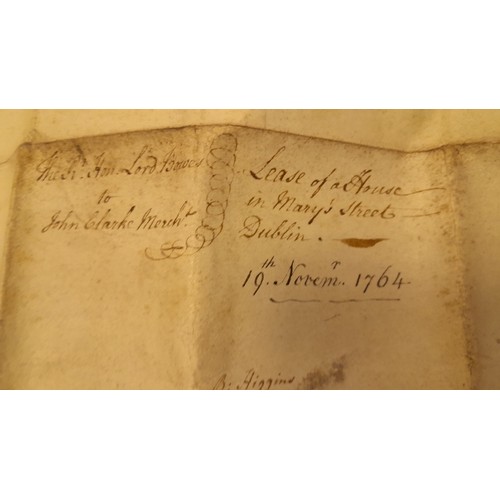 The Rt. Hon. Lord Bowes
to
John Clarke Mercht.
Lease of a House
in Mary's Street
Dublin.
19th. Novemr. 1764
Higgins